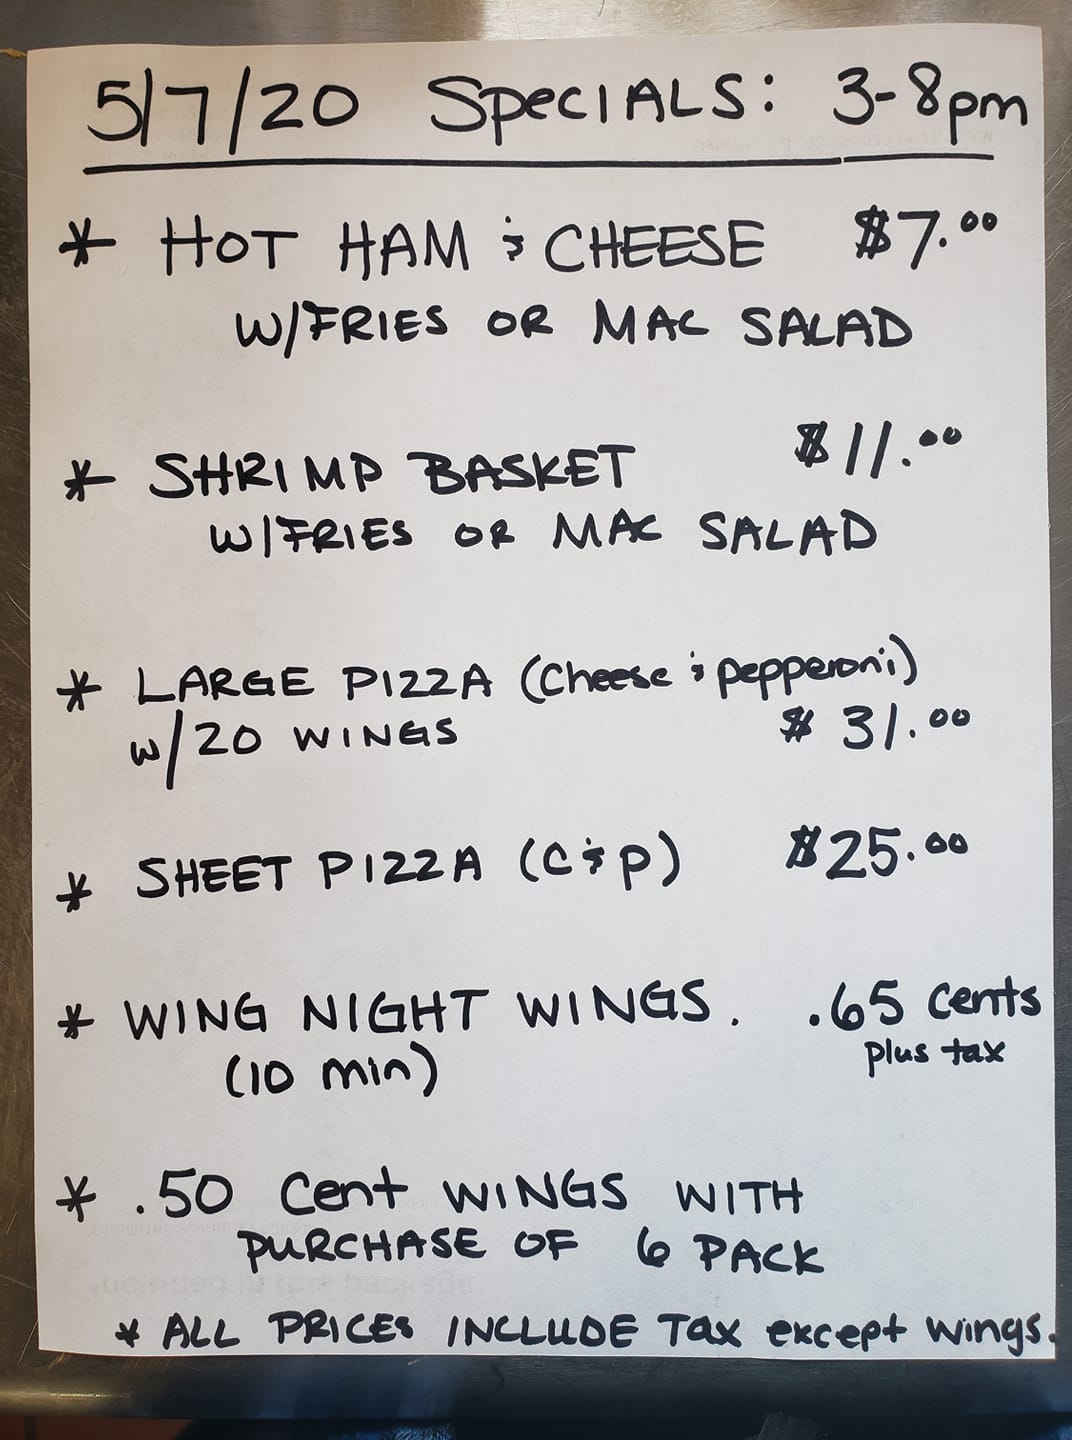 5/7/20 Specials: 3-8pm
* HOT HAM & CHEESE $7.00
W/FRIES OR MAC SALAD
* SHRIMP BASKET $11.00
W/FRIES OR MAC SALAD
* LARGE PIZZA (Cheese & pepperoni)
w/20 WINGS $31.00
* SHEET PIZZA (C & P) $25.00
* WING NIGHT WINGS. .65 cents
(10 min) plus tax
* .50 Cent WINGS WITH
PURCHASE OF 6 PACK
* ALL PRICES INCLUDE Tax except wings.